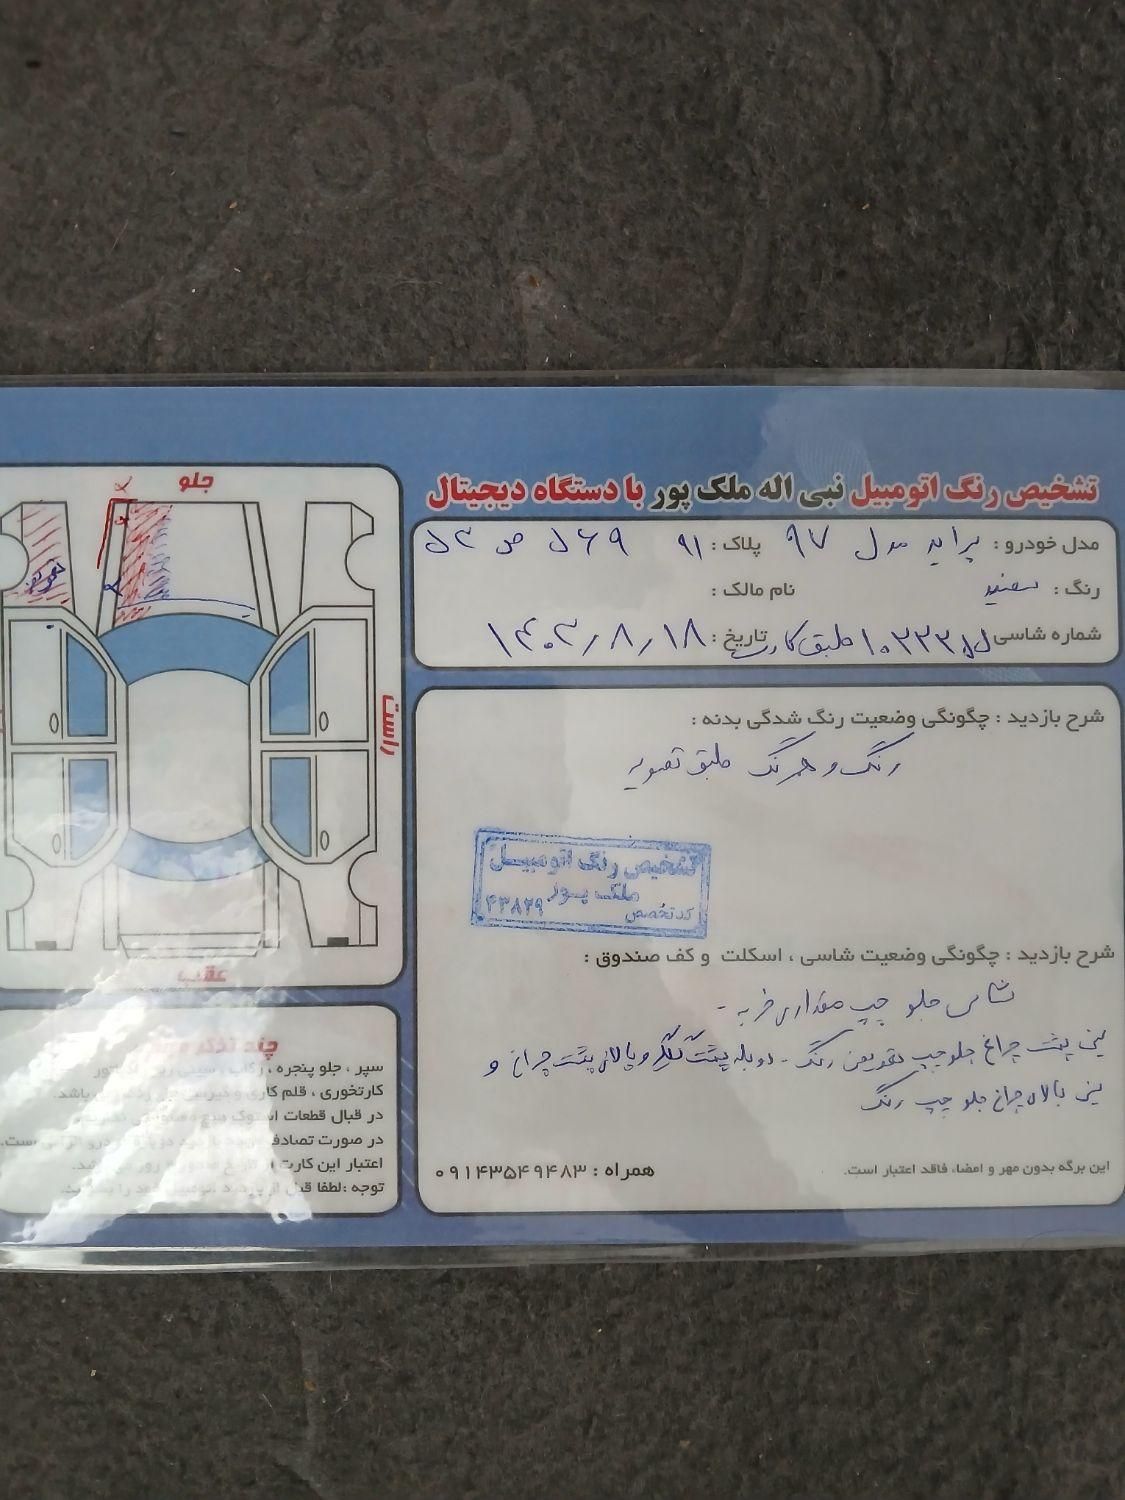 تشخیص رنگ اتومبیل نبی اله ملک پور با دستگاه دیجیتال
مدل خودرو : پراید مدل ۹۷ پلاک : ۹۱
رنگ : سفید نام مالک :
شماره شاسی طبق کارت تاریخ : ۱۴۰۳/۸/۱۸
شرح بازدید : چگونگی وضعیت رنگ شدگی بدنه :
رنگ و همرنگ طبق تصویر
تشخیص رنگ اتومبیل
ملک پور
کد تخصص ۴۳۸۲۹
شرح بازدید : چگونگی وضعیت شاسی ، اسکلت و کف صندوق :
شاسی جلو چپ مقداری ضربه -
سینی پشت چراغ جلو چپ تعویض رنگ - دوبله پشت گلگیر و بالای پشت چراغ و
سینی بالای چراغ جلو چپ رنگ
این برگه بدون مهر و امضاء فاقد اعتبار است.
همراه : ۰۹۱۴۳۵۴۹۴۸۳
جلو
تعویض
راست
عقب
چند تذکر مهم
سپر ، جلو پنجره ، رکاب ، سینی
کارتخوری ، قلم کاری و باشد.
در قبال قطعات استوک هیچ
در صورت تصادف است.
اعتبار این کارت از تاریخ صدور روز می باشد.
توجه : لطفا قبل از بازدید اتومبیل خود را بشوئید.